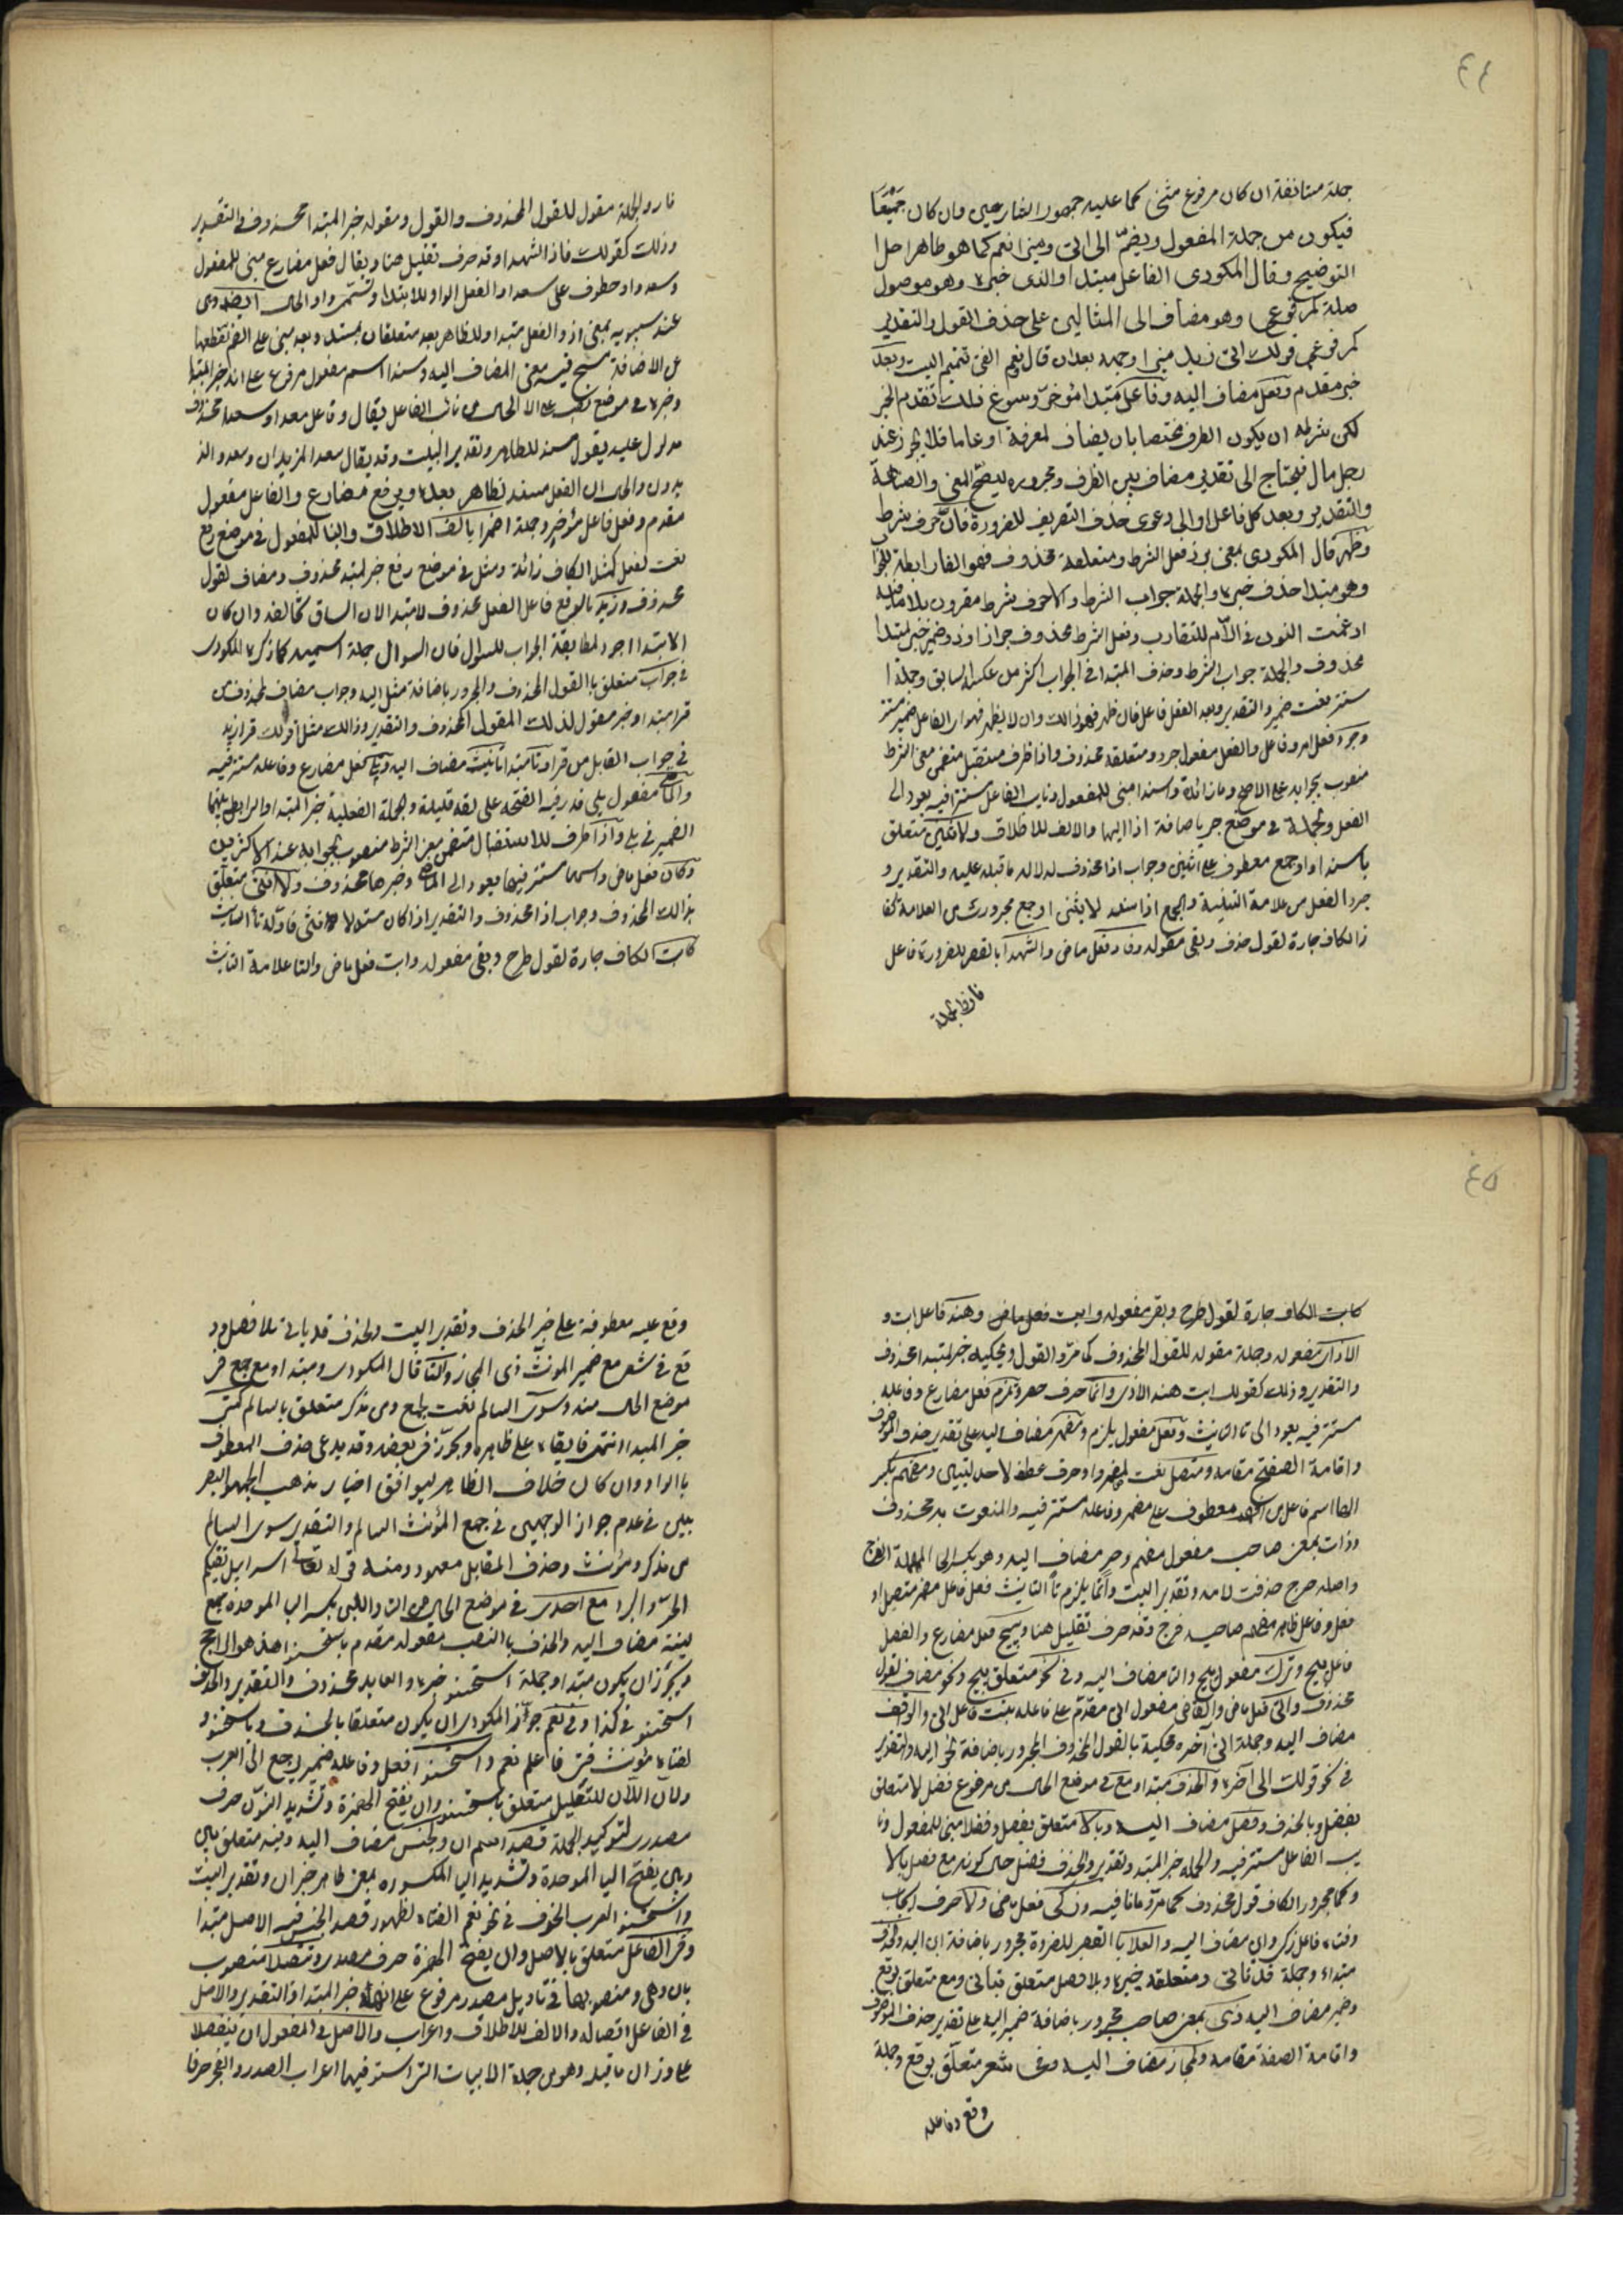 ٤٤
جملة مستانفة ان كان مرفوع مثنى كما عليه جمهور الشارحين وان كان جميعًا
فيكون من جملة المفعول ويضم الى اتى ومنيرا نعم كما هو ظاهر حل
التوضيح وقال المكودى الفاعل مبتدا والذى خبره وهو موصول
صلة كمرفوعى وهو مضاف الى المثالين على حذف القول والتقدير
كمرفوعى قولك اتى زيد منيرا وجهه بعد ان قال نعم الفتى تتميم البيت وبعد
خبر مقدم وفعل مضاف اليه وفاعل مبتدا مؤخر وسوغ ذلك تقدم الخبر
لكن شرطه ان يكون الظرف مختصا بان يضاف لمعرفة او عاما فلا يجوز عند
رجل مال فيحتاج الى تقدير مضاف بين الظرف ومجروره ليصح المعنى والصناعة
والتقدير وبعد كل فاعل اولى دعوى حذف التعريف للضرورة فان حرف شرط
وظهر قال المكودى بمعنى برز فعل الشرط ومتعلقه محذوف فهو الفا رابطة للجواب
وهو مبتدا حذف خبره والجملة جواب الشرط والا حرف شرط مقرون بلا نافية
ادغمت النون فى اللام للتقارب وفعل الشرط محذوف جوازا وضمير خبر لمبتدا
محذوف والجملة جواب الشرط وحذف المبتدا فى الجواب اكثر من عكسه السابق وجملة ا
ستتر نعت ضمير والتقدير وبعد الفعل فاعل فان ظهر فهو ذالك وان لا يظهر فهو اى الفاعل ضمير مستتر
وجرد فعل امر وفاعل والفعل مفعول جرد ومتعلقه محذوف واذا ظرف مستقبل متضمن معنى الشرط
منصوب بجوابه على الاصح وما زائدة واسندا مبنى للمفعول ونايب الفاعل مستتر فيه يعود الى
الفعل والجملة فى موضع جر باضافة اذا اليها والالف للاطلاق ولاثنين متعلق
باسندا او جمع معطوف على اثنين وجواب اذا محذوف لدلالة ما قبله عليه والتقدير و
جرد الفعل من علامة التثنية والجمع اذا اسند لاثنين او جمع مجرور من العلامة كفا
ز الكاف جارة لقول حذف وبقى مقوله وفاز فعل ماض والشهدا بالقصر للضرورة فاعل
فاز والجملة
فاز والجملة مقول للقول المحذوف والقول ومقوله خبر المبتدا محذوف والتقدير
وذلك كقولك فاز الشهدا وقد حرف تقليل هنا ويقال فعل مضارع مبنى للمفعول
وسعدوا معطوف على سعدا والفعل الواو للابتدا وتسمى واو الحال ايضا وهى
عند سيبويه بمعنى اذ والفعل مبتدا وللظاهر بعد متعلقان بمسند وبعد مبنى على الضم لقطعها
عن الاضافة منوى فيه معنى المضاف اليه ومسند اسم مفعول مرفوع على انه خبر المبتدا
وخبره فى موضع نصب على الحال من نائب الفاعل يقال وفاعل سعدا وسعدوا محذوف
مدلول عليه بقول مسند للظاهر وتقدير البيت وقد يقال سعدا الزيدان وسعدوا الز
يدون والحال ان الفعل مسند لظاهر بعد ويرفع مضارع والفاعل مفعول
مقدم وفعل فاعل مؤخر وجملة اضمرا بالف الاطلاق والبنا للمفعول فى موضع رفع
نعت لفعل كمثل الكاف زائدة ومثل فى موضع رفع خبر لمبتدا محذوف ومضاف لقول
محذوف وزيد بالرفع فاعل الفعل محذوف لا مبتدا لان السياق يخالفه وان كان
الابتدا اجود لمطابقة الجواب للسؤال فان السوال جملة اسمية كما ذكره المكودى
فى جواب متعلق بالقول المحذوف والمجرور باضافة مثل اليه وجواب مضاف لمحذوف من
قرا مبتدا وخبر مقول لذلك المقول المحذوف والتقدير وذالك مثل قولك قرا زيد
فى جواب القايل من قرا وتا مبتدا تانيث مضاف اليه وتلى فعل مضارع وفاعله مستتر فيه
والماضى مفعول يلى قدر فيه الفتحة على لغة قليلة والجملة الفعلية خبر المبتدا والرابط بينهما
الضمير فى يلى واذا ظرف للاستقبال متضمن معنى الشرط منصوب بجوابه عند الاكثرين
وكان فعل ماض واسمها مستتر فيها يعود الى الماضى وخبرها محذوف ولانثى متعلق
بذالك المحذوف وجواب اذا محذوف والتقدير اذا كان مسندا لانثى فاوله تا التانيث
كابت الكاف جارة لقول طرح وبقى مفعوله وابت فعل ماض والتا علامة التانيث
٤٥
كابت الكاف جارة لقول طرح وبقى مفعوله وابت فعل ماض وهند فاعل ابت و
الاذى مفعوله وجملة مقوله للقول المحذوف كما مر والقول ومحكيه خبر لمبتدا محذوف
والتقدير وذلك كقولك ابت هند الاذى وانما حرف حصر وتلزم فعل مضارع وفاعله
مستتر فيه يعود الى تا التانيث وفعل مفعول يلزم ومضمر مضاف اليه على تقدير حذف الموصوف
واقامة الصفة مقامه ومتصل نعت لمضمر واو حرف عطف لاحد الشيئين ومفهم بكسر
الها اسم فاعل من افهم معطوف على مضمر وفاعله مستتر فيه والمنعوت به محذوف
وذات بمعنى صاحب مفعول مفهم وحر مضاف اليه وهو بكسر الحا المهملة الفرج
واصله حرج حذفت لامه وتقدير البيت وانما يلزم تا التانيث فعل فاعل مضمر متصل او
فعل وفاعل ظاهر مفهم صاحبة فرج وقد حرف تقليل هنا ويبيح فعل مضارع والفصل
فاعل يبيح وترك مفعول يبيح والتا مضاف اليه وفى نحو متعلق بيبيح ونحو مضاف لقول
محذوف واتى فعل ماض والقاضى مفعول اتى مقدم على فاعله وبنت فاعل اتى والواقف
مضاف اليه وجملة اتى الى آخره محكية بالقول المحذوف المجرور باضافة نحو اليه والتقدير
فى نحو قولك الى آخره والحذف مبتدا ومع فى موضع الحال من مرفوع فضل لا متعلق
بفضل وبالحذف وفصل مضاف اليه وبالا متعلق بفصل وفضلا مبنى للمفعول ونا
يب الفاعل مستتر فيه والجملة خبر المبتدا وتقديره والحذف فضل حال كونه مع فصل بالا
وكما مجرور الكاف قول محذوف كما مر وما نافية وزكى فعل ماض والا حرف ايجاب
وفتاة فاعل زكى وابن مضاف اليه والعلا بالقصر للضرورة مجرور باضافة ابن اليه والحذف
مبتدا وجملة قد ياتى ومتعلقه خبره وبلا فصل متعلق بياتى ومع متعلق بوقع
وضمير مضاف اليه وذى بمعنى صاحب مجرور باضافة ضمير اليه على تقدير حذف الموصوف
واقامة الصفة مقامه والمجاز مضاف اليه وفى شعر متعلق بوقع وجملة
وقع وفاعله
وقع عليه معطوفة على خبر الحذف وتقدير البيت والحذف قد ياتى بلا فصل و و
قع فى شعر مع ضمير المونث ذى المجاز والتا قال المكودى ومبتدا ومع جمع فى
موضع الحال منه وسوى السالم نعت لجمع ومن مذكر متعلق بالسالم كمتى
خبر المبتدا انتهى فابقاه على ظاهره وبجوز فى بعضه وقد يدعى حذف المعطوف
بالواو وان كان خلاف الظاهر ليوافق اختيار مذهب الجمهور البصر
يين فى عدم جواز الوجهين فى جمع المؤنث السالم والتقدير سوى السالم
من مذكر ومؤنث وحذف المقابل معهود ومنه قوله تعالى سرابيل تقيكم
الحر والبرد مع احدى فى موضع الحال من التا واللبن بكسر البا الموحدة جمع
لبنة مضاف اليه والحذف بالنصب مفعوله مقدم باستحسنوا هذا هو الراجح
ويجوز ان يكون مبتدا وجملة استحسنوا خبره والعايد محذوف والتقدير والحذف
استحسنوه فى كذا وفى نعم جوز المكودى ان يكون متعلقا بالحذف وباستحسنوا و
الفتاة مؤنث فتى فاعل نعم واستحسنوا فعل وفاعله ضمير يرجع الى العرب
ولان اللام للتعليل متعلق باستحسنوا وان بفتح الهمزة وتشديد النون حرف
مصدرى لتوكيد الجملة قصد اسم ان والجنس مضاف اليه وفيه متعلق ببين
وبين بفتح البا الموحدة وتشديد اليا المكسورة بمعنى ظاهر خبر ان وتقدير البيت
واستحسنوا العرب الحذف فى نحو نعم الفتاة لظهور قصد الجنس فيه الاصل مبتدا
وفى الفاعل متعلق بالاصل وان بفتح الهمزة حرف مصدرى وتتصلا منصوب
بان وهى ومنصوبها فى تاويل مصدر مرفوع على انه خبر المبتدا والتقدير والاصل
فى الفاعل اتصاله والالف للاطلاق واعراب والاصل فى المفعول ان ينفصلا
على وزان ما قبله وهو من جملة الابيات التى استوفيها اعراب الصدر والعجز حرفا